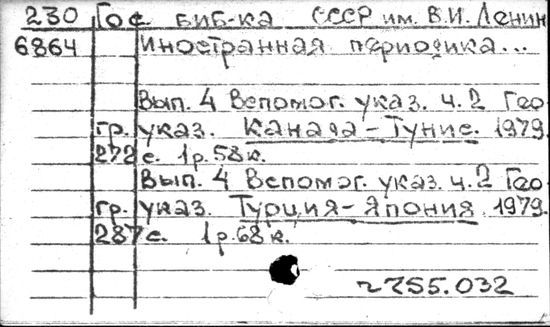 230 Гос биб-ка СССР им. В.И. Ленин
6864 Иностранная периодика...
Вып. 4 Вспомог. указ. ч. 2 Гео
гр. указ. Канада-Тунис. 1979.
272 с. 1 р. 58 к.
Вып. 4 Вспомог. указ. ч. 2 Гео
гр. указ. Турция-Япония. 1979.
287 с. 1 р. 68 к.
755.032